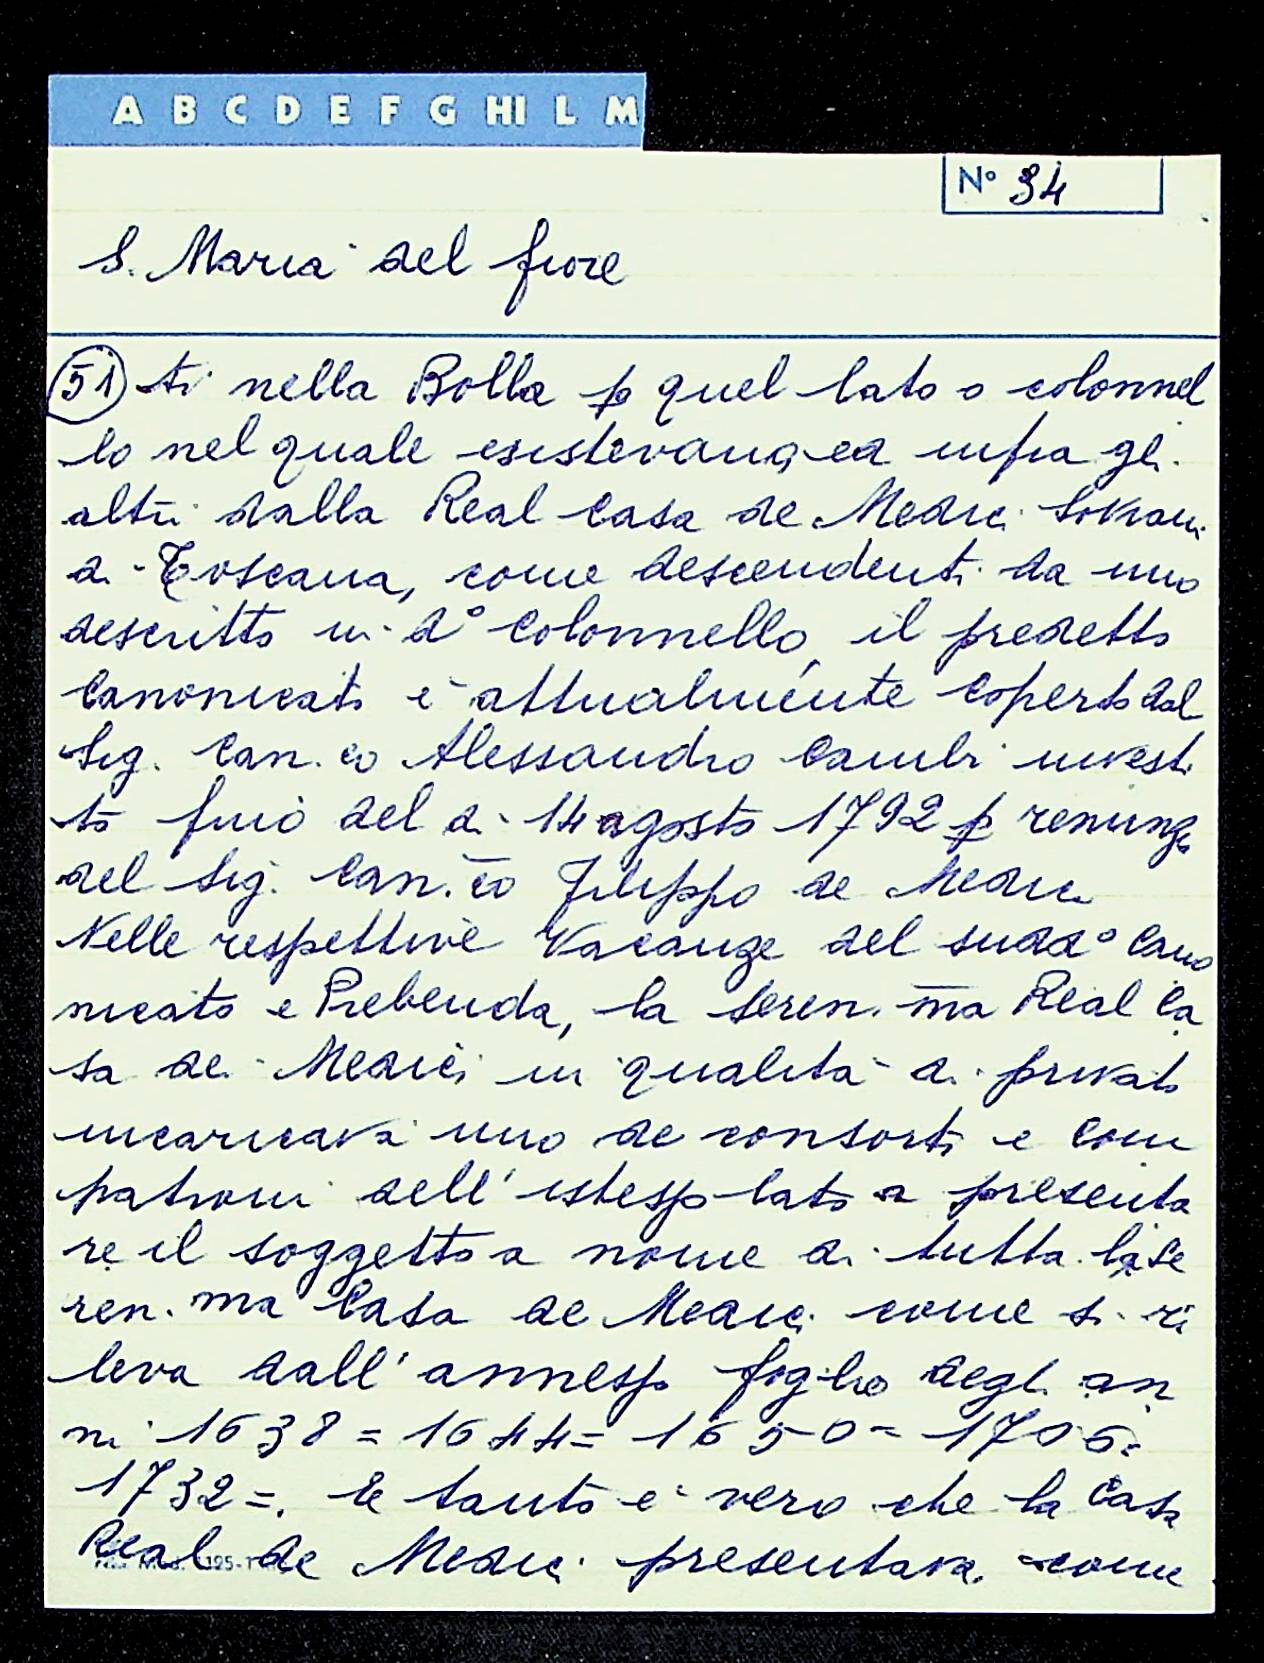 A B C D E F G HI L M
N° 34
S. Maria del fiore
51 ti nella Bolla p quel lato o colonnel
lo nel quale esistevano, ed infra gli
altri dalla Real Casa de Medici Sovrani
di Toscana, come descendenti da uno
descritto in d° Colonnello, il predetto
Canonicato è attualmente coperto dal
Sig. Can.co Alessandro Cambi investi
to fino del dì 14 agosto 1792 p renunzia
del Sig. Can.co Filippo de Medici
Nelle respettive Vacanze del sudd° Cano
nicato e Prebenda, la Seren.ma Real Ca
sa de Medici in qualità di privato
incaricava uno de consorti e com
patroni dell'istesso lato a presenta
re il soggetto a nome di tutta la Se
ren.ma Casa de Medici come si ri
leva dall'annesso foglio degl. an
ni 1638 = 1644 = 1650 = 1706 =
1732 =. E tanto è vero che la Casa
Real de Medici presentava, come